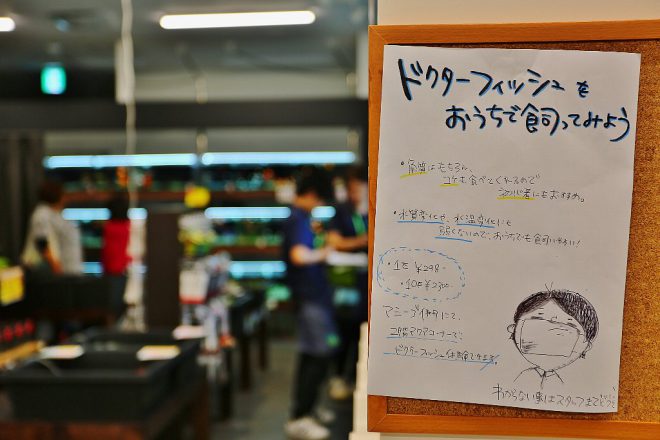 ドクターフィッシュを
おうちで飼ってみよう
・角質はもちろん、
コケも食べてくれるので
初心者にもおすすめ。
・水質変化や、水温変化にも
弱くないので、おうちでも飼育しやすい!
・1匹 ¥298-
・10匹 ¥2300-
アミーゴ
2階アクアコーナーで、
ドクターフィッシュ体験できます。
わからない事はスタッフまでどうぞ